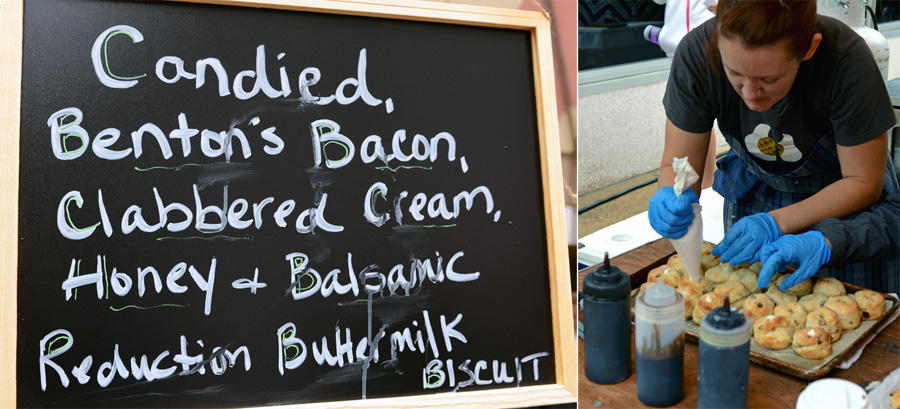 Candied,
Benton's Bacon,
Clabbered Cream,
Honey & Balsamic
Reduction Buttermilk
BISCUIT